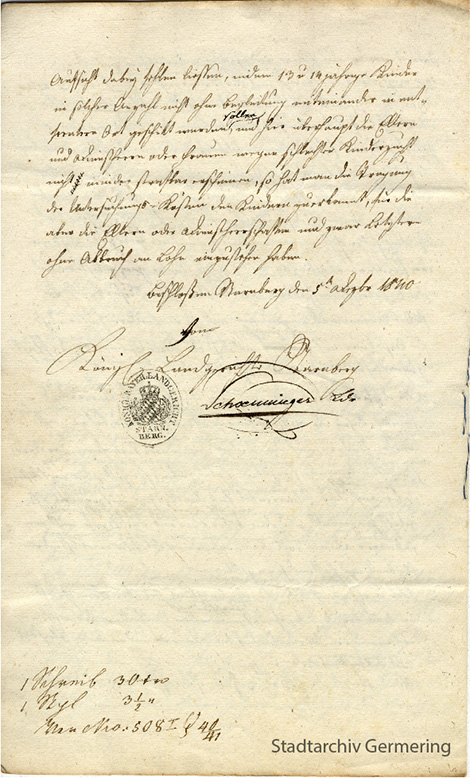 Aufsicht dabey fehlen liessen, indem 13 u 14 jährige Kinder
in solcher Anzahl nicht ohne Begleitung miteinander in ent-
ferntere Ort geschikt werden sollen, und hier überhaupt die Eltern
und Dienstherrn oder Frauen wegen schlechter Kinderzucht
nicht minder strafbar erscheinen, so hat man die Tragung
der Untersuchungs-Kosten den Kindern zuerkannt, für die
aber die Eltern oder Dienstherrschaften und zwar Letztere
ohne Abbruch am Lohn einzustehen haben.
Beschlossen Starnberg den 5t 1840
Vom
Königl Landgerichte Starnberg
KÖNIGL. BAYER. LANDGERICHT
STARN
BERG.
1 Schreib 30
1 Sigl 3½ "
Nro: 508 I 40/41
Stadtarchiv Germering